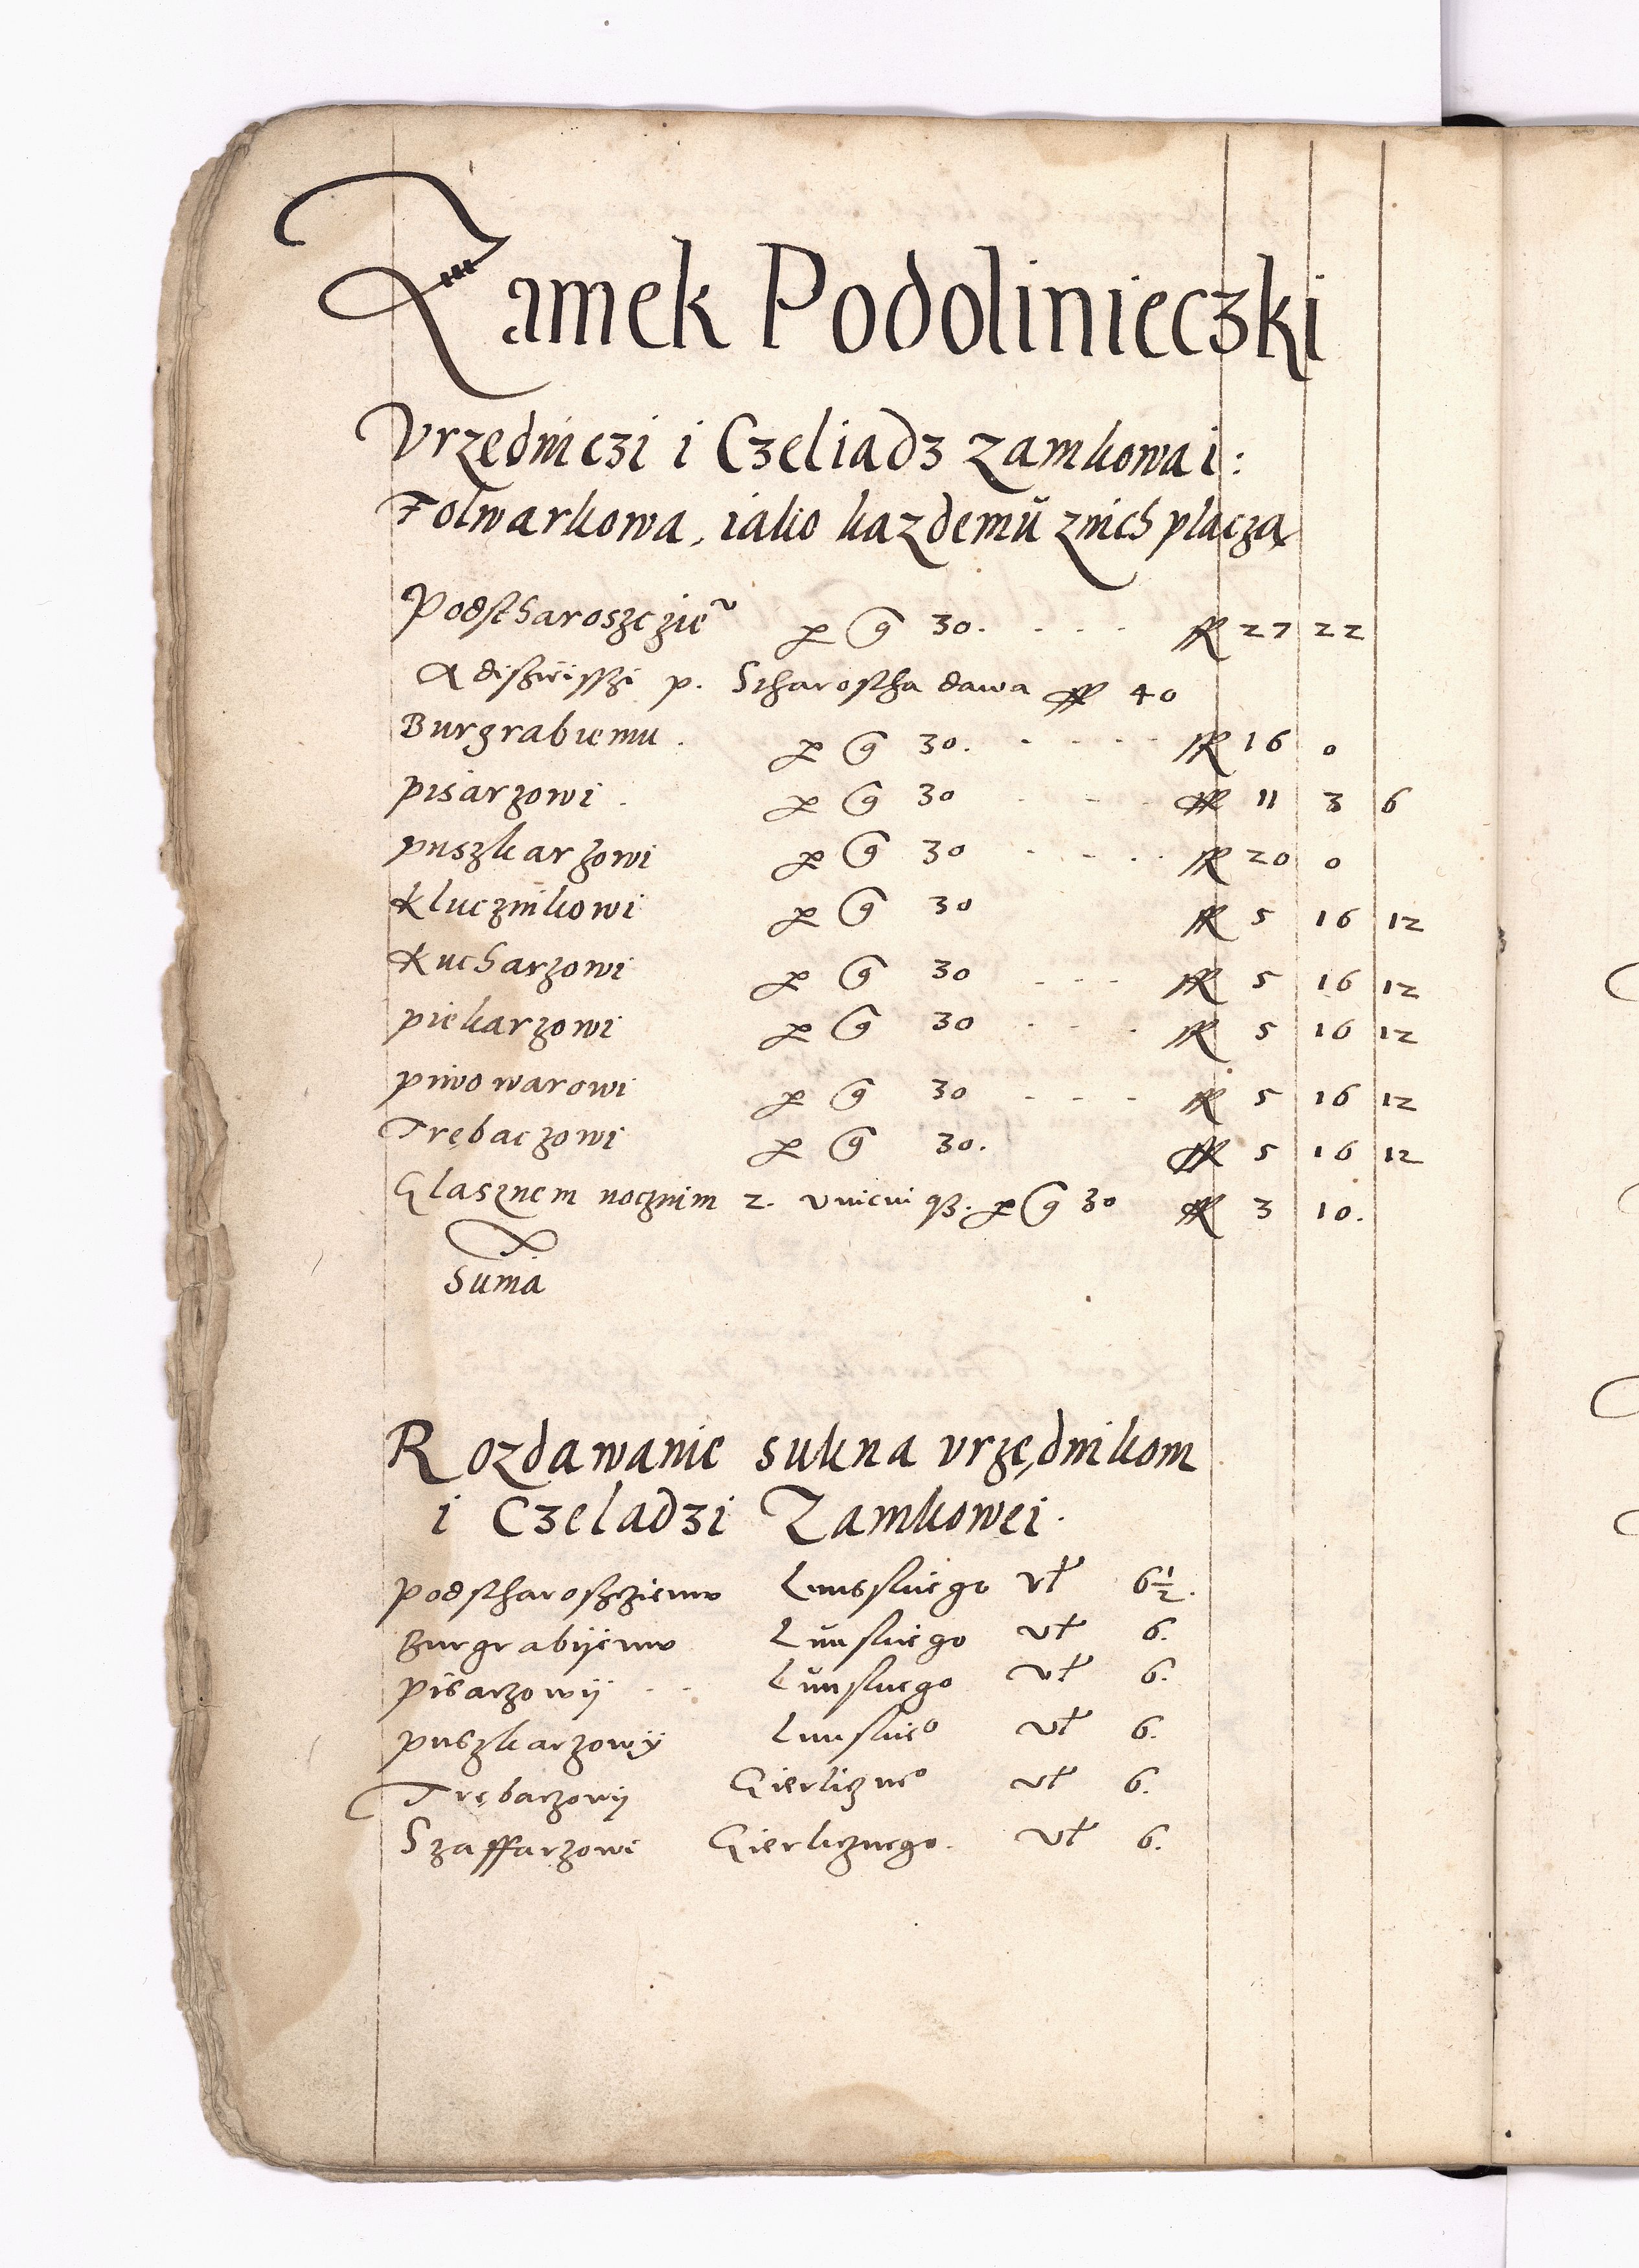 Zamek Podolinieczki
Vrzędniczi i Czeliadz zamkowa i:
Folwarkowa, iako kazdemŭ znich płaczą
Podstharoszczie͂ per g 30. fl 27 22
A dishieisszi p. Stharostha dawa fl 40
Burgrabiemu. per g 30. fl 16 0
pisarzowi. per g 30 fl 11 3 6
puszkarzowi per g 30 fl 20 0
Klucznikowi per g 30 fl 5 16 12
Kucharzowi per g 30 fl 5 16 12
piekarzowi per g 30 fl 5 16 12
piwowarowi per g 30 fl 5 16 12
Trębaczowi per g 30. fl 5 16 12
Glasznem nocznim 2. vnicuiqȝ. per g 30 fl 3 10.
Suma
Rozdawanie sukna vrzędnikom
i Czeladzi Zamkowei.
podstharoszcziemv Lunskiego vł 6½.
Burgrabijemv Lŭnskiego vł 6.
pisarzowij Lŭnskiego vł 6.
puszkarzowÿ Lunskieo vł 6.
Trębaczowij Gierliczneo vł 6.
Szaffarzowi Gierlicznego. vł 6.